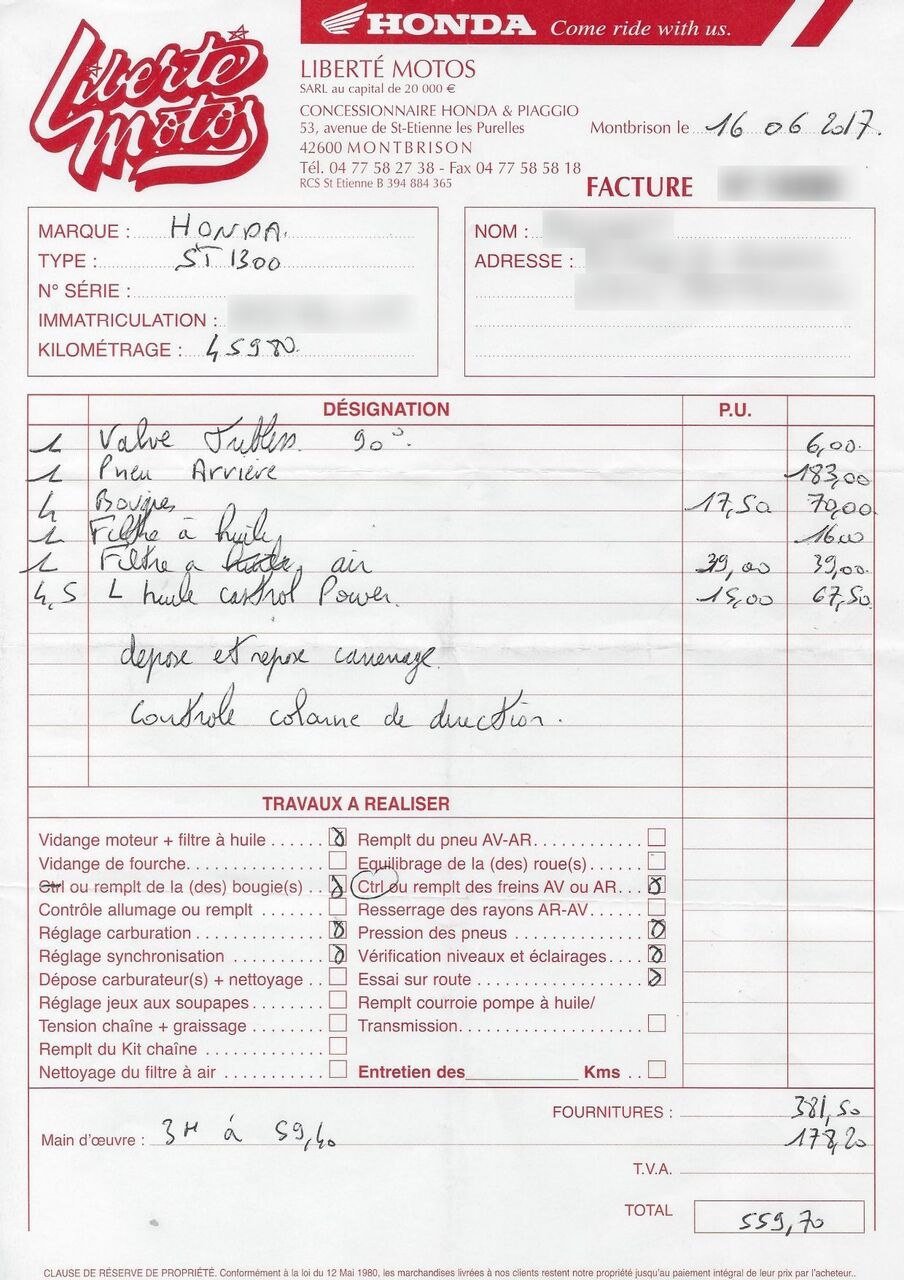 Liberté Motos
HONDA Come ride with us.
LIBERTÉ MOTOS
SARL au capital de 20 000 €
CONCESSIONNAIRE HONDA & PIAGGIO
53, avenue de St-Etienne les Purelles
42600 MONTBRISON
Tél. 04 77 58 27 38 - Fax 04 77 58 58 18
RCS St Etienne B 394 884 365
Montbrison le 16 06 2017.
FACTURE
MARQUE : HONDA.
TYPE : ST 1300
N° SÉRIE :
IMMATRICULATION :
KILOMÉTRAGE : 45980.
NOM :
ADRESSE :
DÉSIGNATION P.U.
1 Valve Tubless. 90°. 6,00.
1 Pneu Arrière 183,00
4 Bougies 17,50 70,00.
1 Filtre à huile 16.00
1 Filtre a huile, air 39,00 39,00.
4,5 L huile castrol Power. 15,00 67,50
depose et repose carenage.
Controle colonne de direction.
TRAVAUX A REALISER
Vidange moteur + filtre à huile
Vidange de fourche
Ctrl ou remplt de la (des) bougie(s)
Contrôle allumage ou remplt
Réglage carburation
Réglage synchronisation
Dépose carburateur(s) + nettoyage
Réglage jeux aux soupapes
Tension chaîne + graissage
Remplt du Kit chaîne
Nettoyage du filtre à air
Remplt du pneu AV-AR
Equilibrage de la (des) roue(s)
Ctrl ou remplt des freins AV ou AR
Resserrage des rayons AR-AV
Pression des pneus
Vérification niveaux et éclairages
Essai sur route
Remplt courroie pompe à huile/
Transmission
Entretien des Kms
FOURNITURES : 381,50
Main d'œuvre : 3H à 59,40 178,20
T.V.A.
TOTAL 559,70
CLAUSE DE RÉSERVE DE PROPRIÉTÉ. Conformément à la loi du 12 Mai 1980, les marchandises livrées à nos clients restent notre propriété jusqu'au paiement intégral de leur prix par l'acheteur..